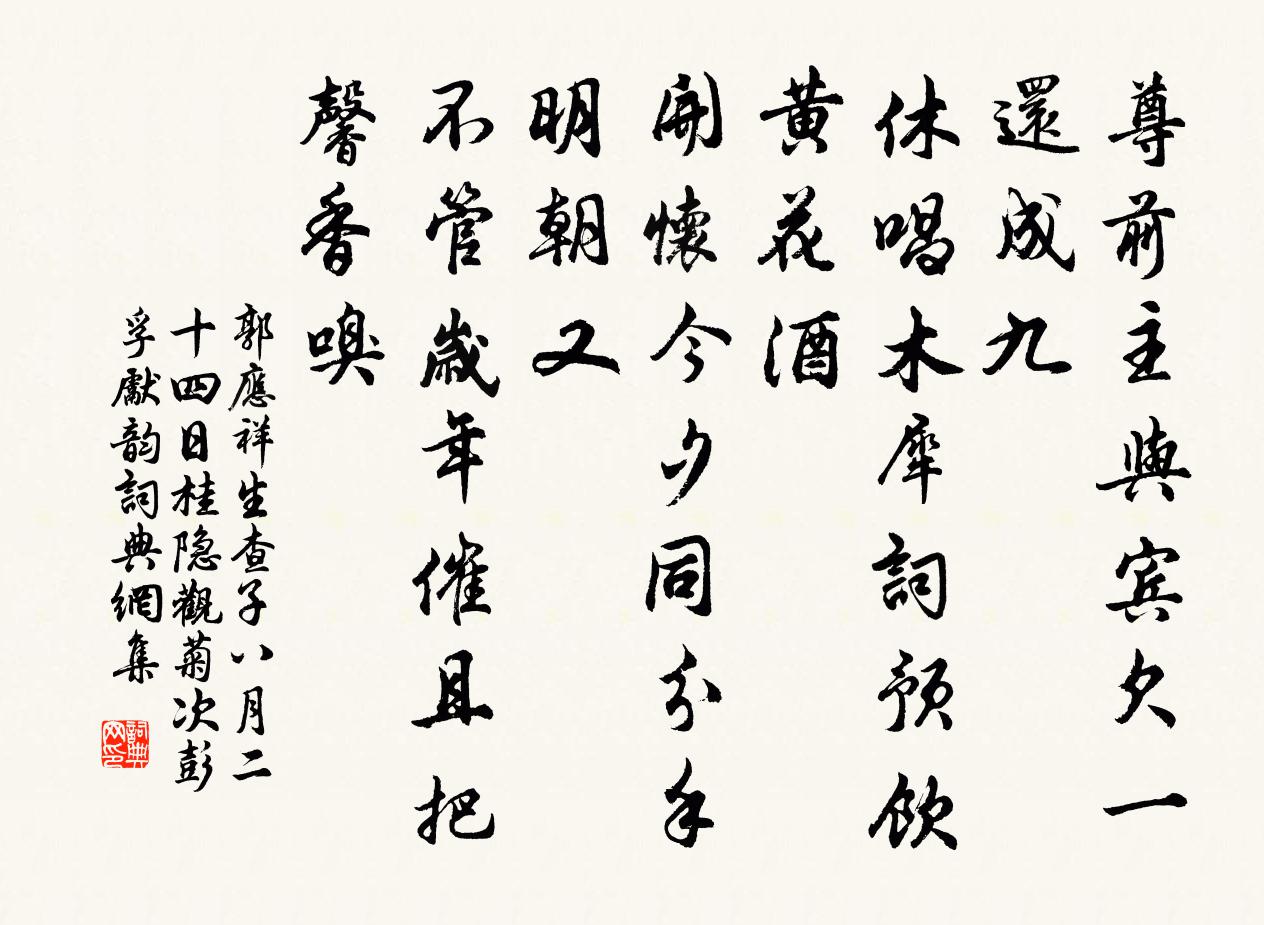 尊前主與宾欠一
還成九
休唱木犀詞預飲
黄花酒
開懷今夕同分手
明朝又
不管歲年催且把
馨香嗅
郭應祥生查子八月二
十四日桂隐觀菊次彭
孚獻韵詞典網集
詞典
网印